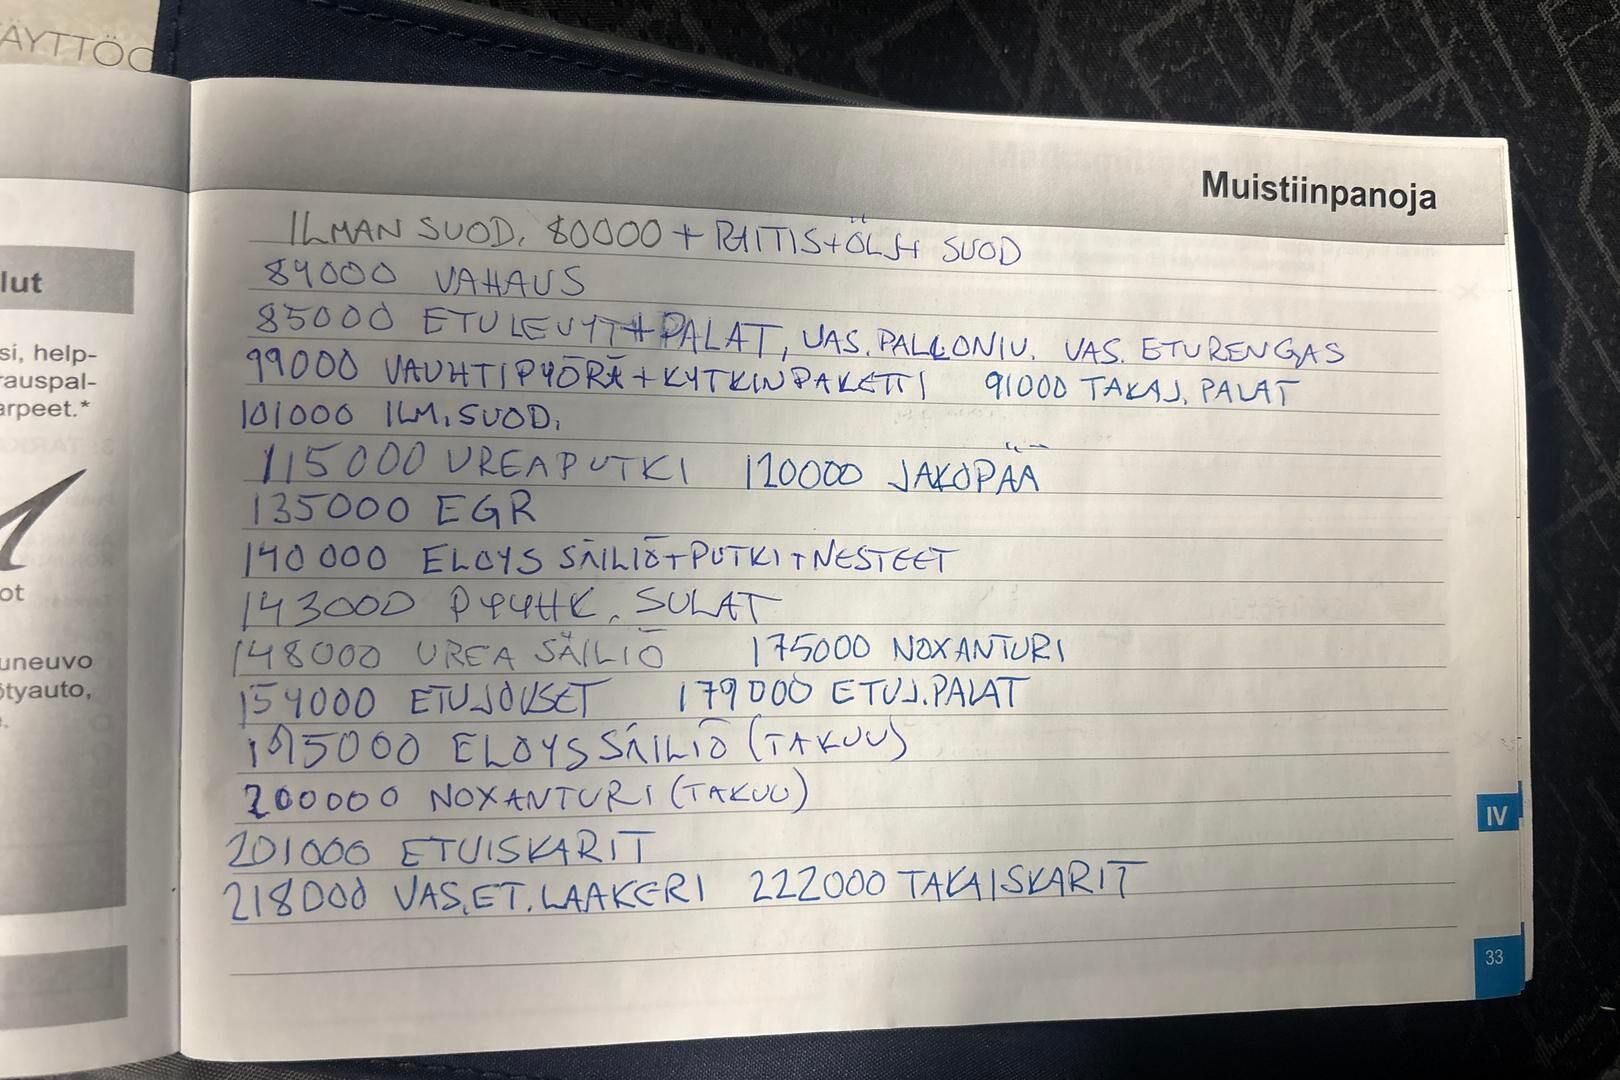 ÄYTTÖO
lut
si, help-
rauspal-
arpeet.*
ot
uneuvo
ötyauto,
Muistiinpanoja
ILMAN SUOD. 80000 + RAITIS+ÖLJY SUOD
84000 VAHAUS
85000 ETULEVYT+PALAT, VAS. PALLONIV. VAS. ETURENGAS
99000 VAUHTIPYÖRÄ+KYTKINPAKETTI 91000 TAKAJ. PALAT
101000 ILM.SUOD.
115000 UREAPUTKI 120000 JAKOPÄÄ
135000 EGR
140000 ELOYS SÄILIÖ+PUTKI+NESTEET
143000 PYYHK. SULAT
148000 UREA SÄILIÖ 175000 NOXANTURI
154000 ETUJOUSET 179000 ETUJ.PALAT
195000 ELOYS SÄILIÖ (TAKUU)
200000 NOXANTURI (TAKUU)
201000 ETUISKARIT
218000 VAS.ET.LAAKERI 222000 TAKAISKARIT
IV
33